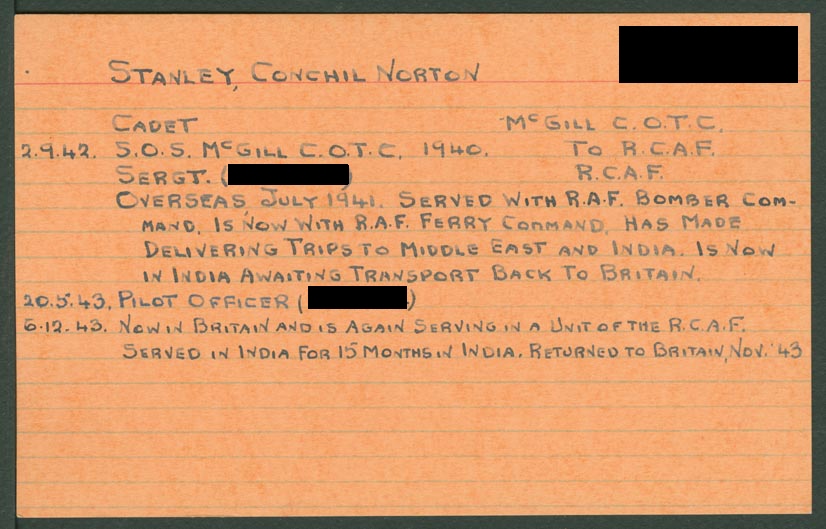 STANLEY, CONCHIL NORTON
CADET McGILL C.O.T.C.
2.9.42. S.O.S. McGILL C.O.T.C. 1940. TO R.C.A.F.
SERGT. ( ) R.C.A.F.
OVERSEAS JULY 1941. SERVED WITH R.A.F. BOMBER COM-
MAND, IS NOW WITH R.A.F. FERRY COMMAND, HAS MADE
DELIVERING TRIPS TO MIDDLE EAST AND INDIA. IS NOW
IN INDIA AWAITING TRANSPORT BACK TO BRITAIN.
20.5.43. PILOT OFFICER ( )
6.12.43. NOW IN BRITAIN AND IS AGAIN SERVING IN A UNIT OF THE R.C.A.F.
SERVED IN INDIA FOR 15 MONTHS IN INDIA. RETURNED TO BRITAIN, NOV. '43